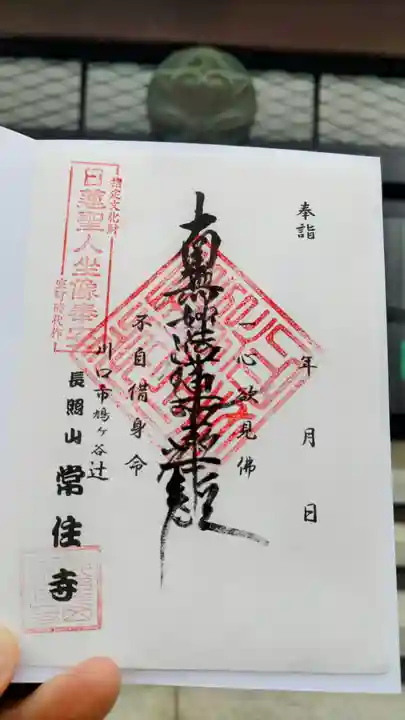 奉詣
年 月 日
一心欲見佛
南無妙法蓮華経
不自借身命
川口市鳩ヶ谷辻
長照山 常住寺
指定文化財
日蓮聖人坐像奉安
室町時代作